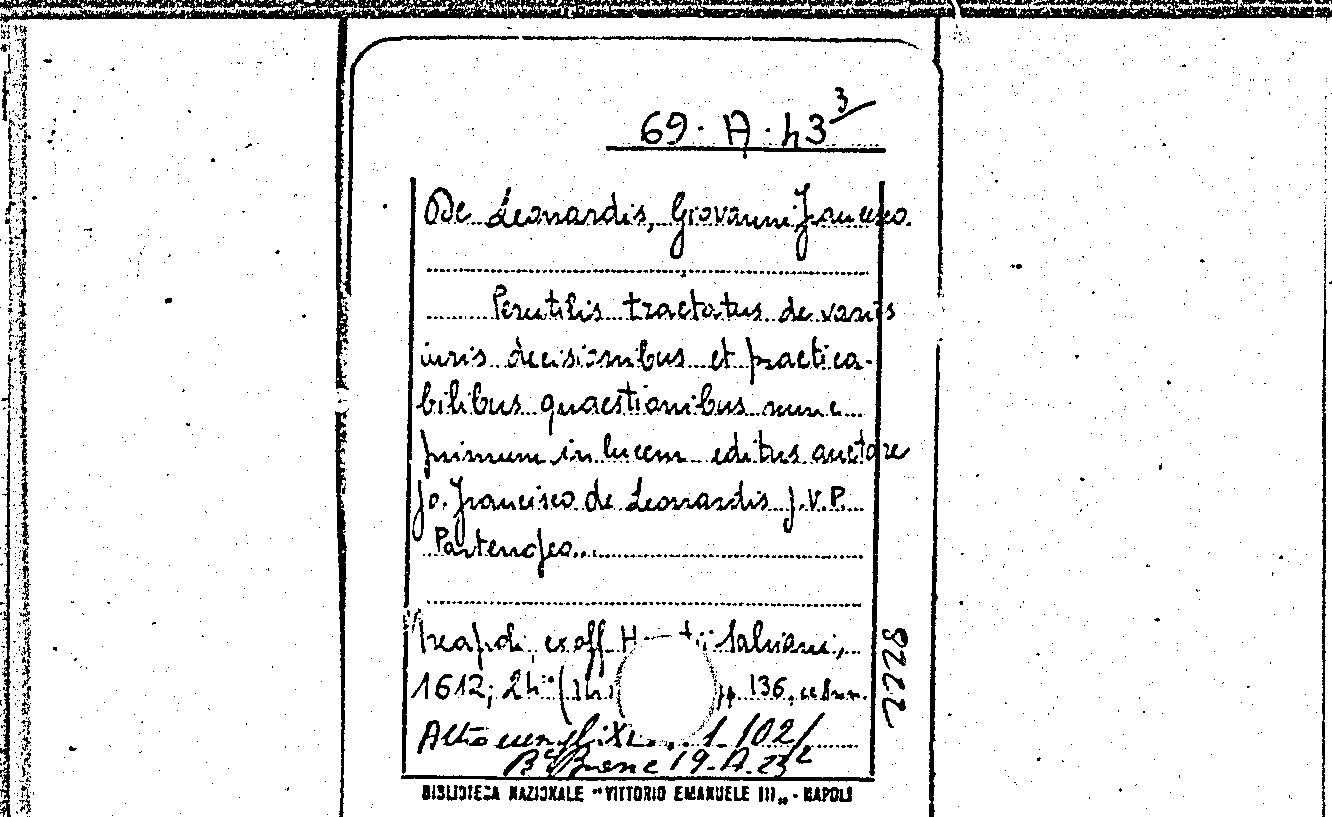 69. A. 43 3/
De Leonardis, Giovanni Francesco.
Perutilis tractatus de variis
iuris decisionibus et practica-
bilibus quaestionibus nunc
primum in lucem editus auctore
Jo. Francisco de Leonardis J.V.P.
Partenopeo.
Neapoli, ex off. H Salviani,
1612; 24° p. 136,
Altro XL 1. 102/
19-A.23 2
8222
BIBLIOTECA NAZIONALE "VITTORIO EMANUELE III„ - NAPOLI